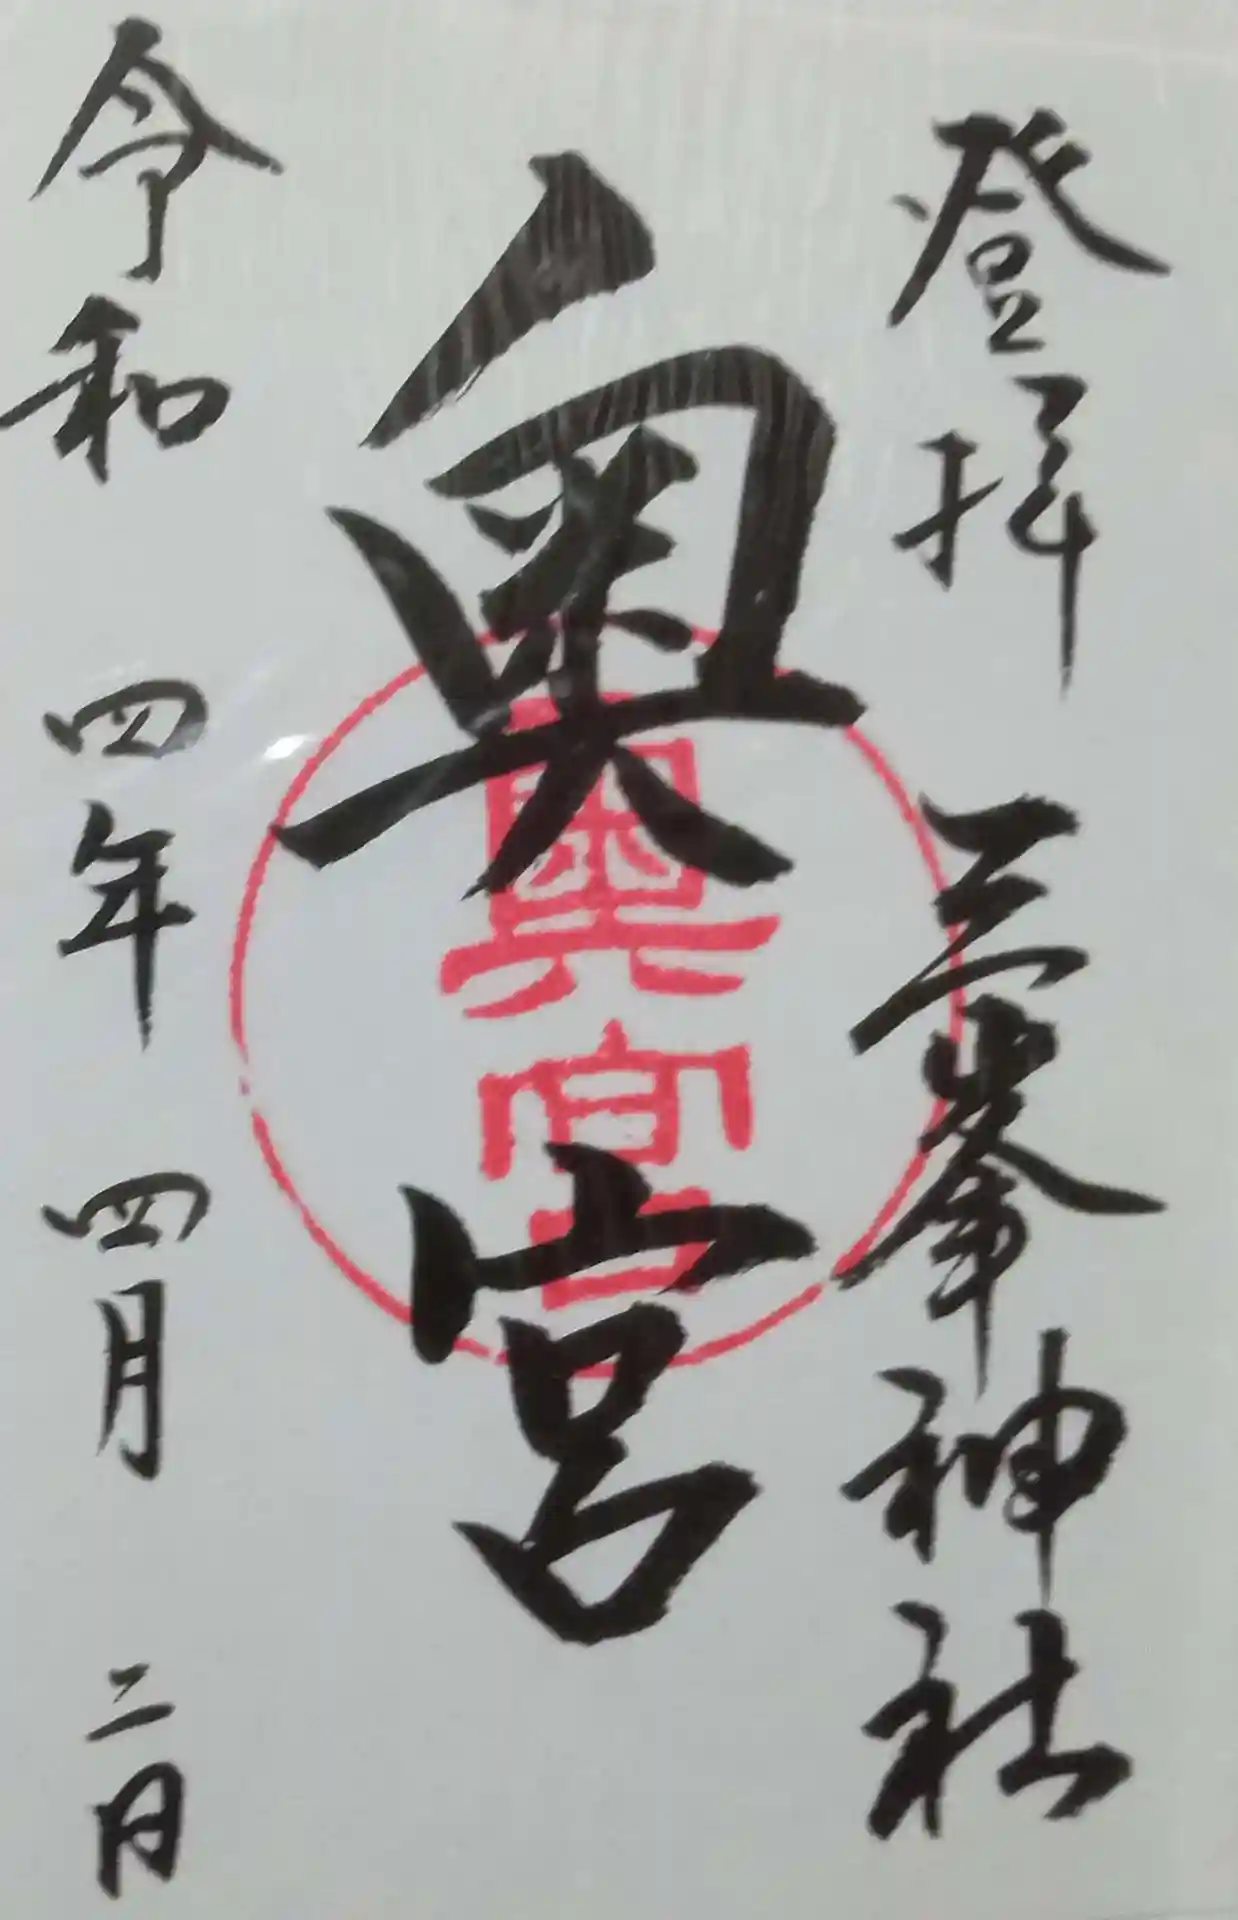 登拝 三峯神社
奥宮
奥宮
令和四年四月二日